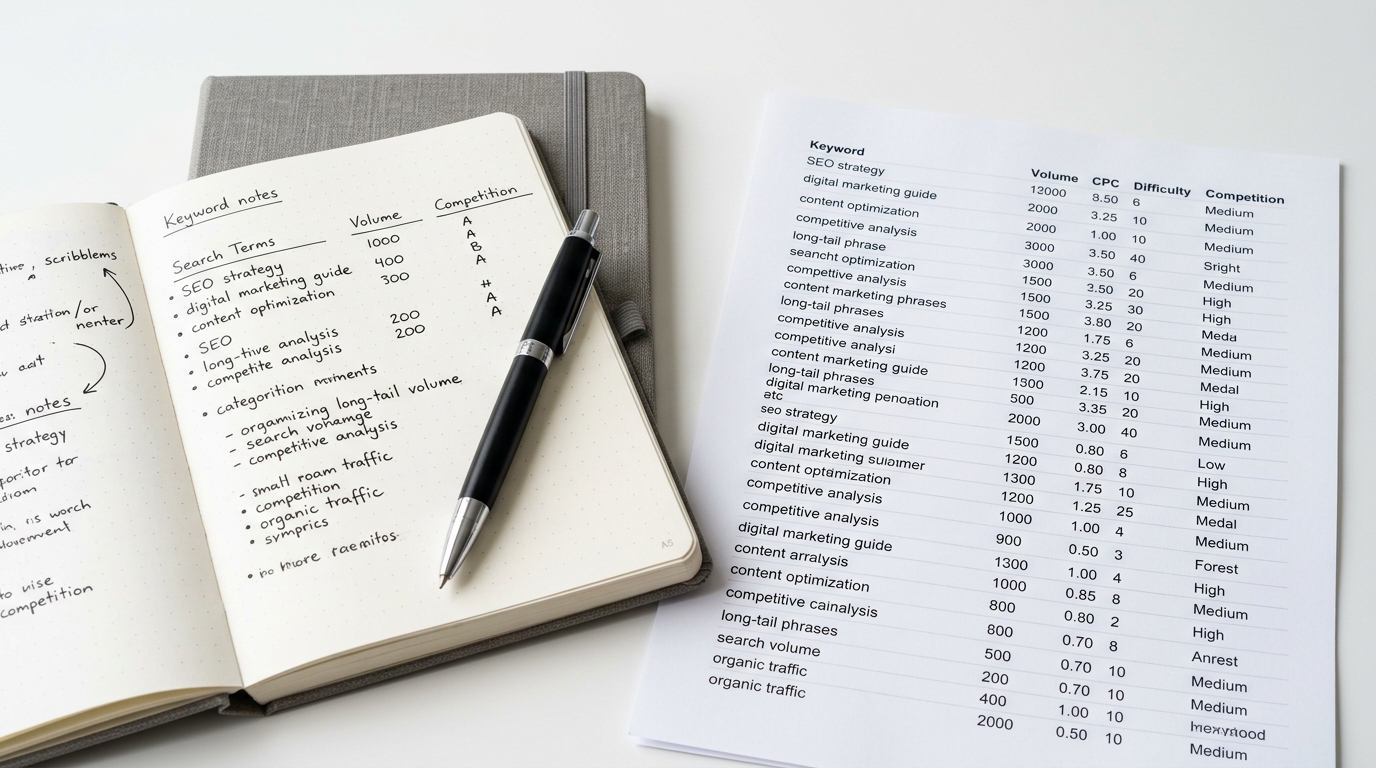 scribblems
notes
strategy
competition
Keyword notes
Search Terms Volume Competition
• SEO strategy 1000 A
• digital marketing guide 400 A
• content optimization 300 B
A
• SEO #
• long-tive analysis 200 A
• competite analysis 200 A
• categorition
- organizing long-tail volume
- search
- competitive analysis
- small roam traffic
• competition
• organic traffic
• symprics
• no more
A5
Keyword Volume CPC Difficulty Competition
SEO strategy 12000 8.50 6 Medium
digital marketing guide 2000 3.25 10 Medium
content optimization 2000 1.00 10 Medium
competitive analysis 3000 3.50 40 Sright
long-tail phrase 3000 3.50 6 Medium
seancht optimization 1500 3.50 20 High
compettive analysis 1500 3.25 30 High
content marketing phrases 1500 3.80 20 Meda
long-tail phrases 1200 1.75 6 Medium
competitive analysis 1200 3.25 20 Medium
competitive analysi 1200 3.75 20 Medal
content marketing guide 1300 2.15 10 High
long-tail phrases 500 3.35 20 Medium
digital marketing penoation
etc 2000 3.00 40 Medium
seo strategy 1500 0.80 6 Low
digital marketing guide 1200 0.80 8 High
digital marketing 1300 1.75 10 Medium
content optimization 1200 1.25 25 Medal
competitive analysis 1000 1.00 4 Medium
competitive analysis 900 0.50 3 Forest
digital marketing guide 1300 1.00 4 High
content arralysis 1000 0.85 8 Medium
content optimization 800 0.80 2 High
competitive cainalysis 800 0.70 8 Anrest
long-tail phrases 500 0.70 10 Medium
search volume 200 0.70 10 Medium
organic traffic 400 1.00 10
organic traffic 2000 0.50 10 Medium